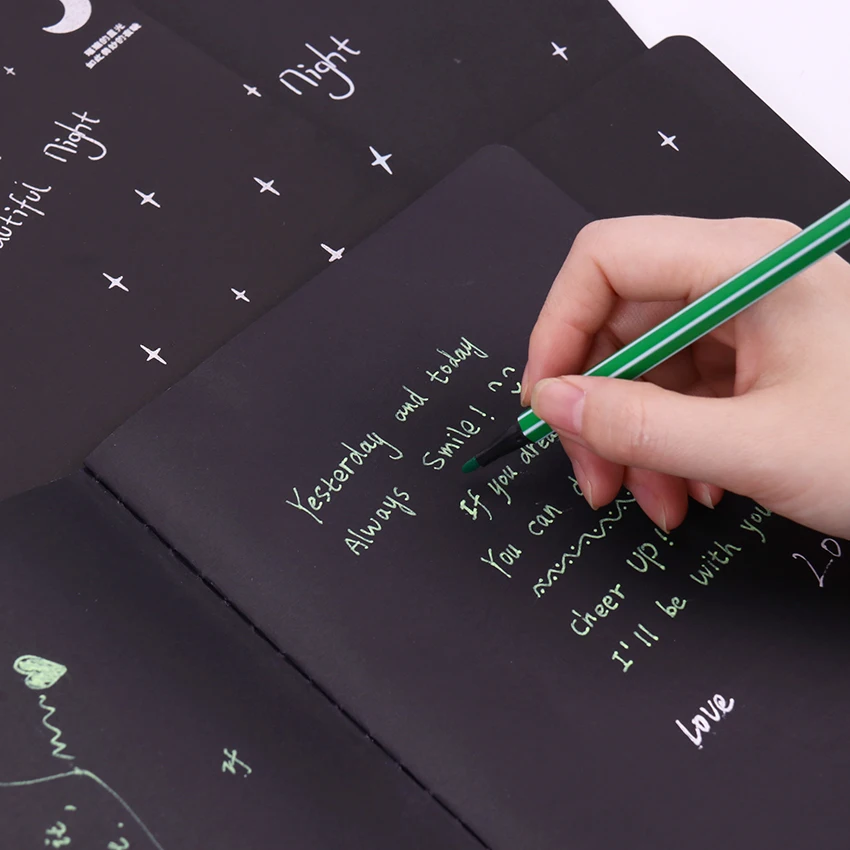 Night
Night
Yesterday and today
Always Smile!
If you
You can
Cheer up!
I'll be with you
Love